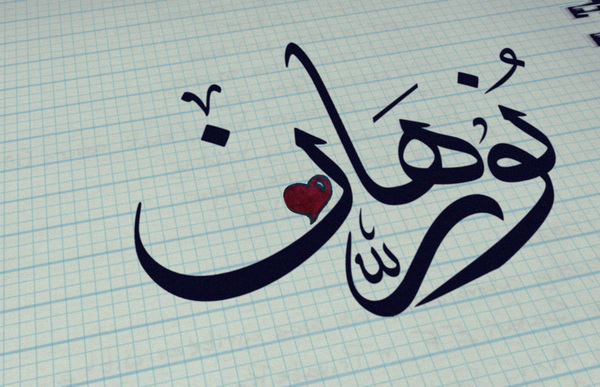 نُورهان